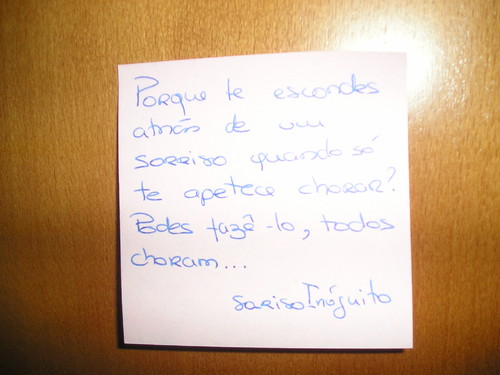 Porque te escondes
atrás de um
sorriso quando só
te apetece chorar?
Podes fazê-lo, todos
choram...
sorriso Inóguito